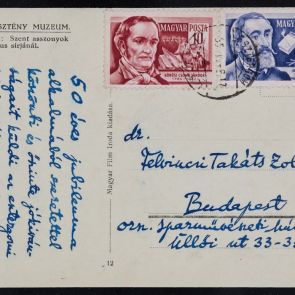 SZTÉNY MUZEUM.
: Szent asszonyok
us sírjánál.
MAGYAR POSTA
KŐRÖSI CSOMA SÁNDOR
MAGYAR
50 éves jubileuma
alkalmából szeretettel
köszönti és szinte jókíván-
ságait küldi az esztergomi
Magyar Film Iroda kiadása.
12
dr.
Felvinczi Takáts Zol
Budapest
orsz. Iparművészeti mú
Üllői ut 33-3